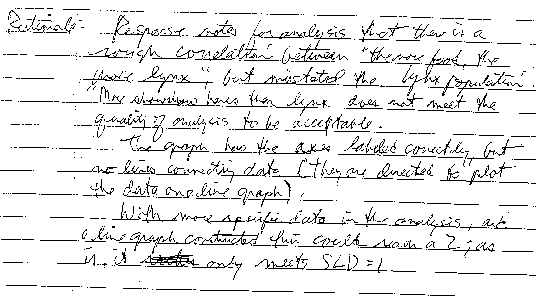 Rationale: Response notes for analysis that there is a
rough correlation between "the more food, the
more lynx", but misstated the lynx population.
"More snowshoe hares than lynx does not meet the
quality of analysis to be acceptable.
The graph has the axes labeled correctly, but
no lines connecting data (they are directed to plot
the data on a line graph).
With more specific data in the analysis, and
a line graph constructed this could reach a 2; as
is, it only meets SLD = 1